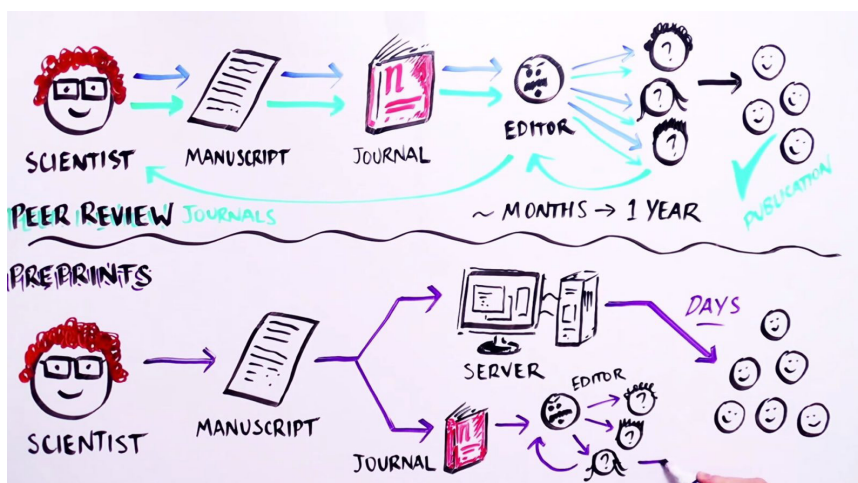 SCIENTIST
MANUSCRIPT
n
JOURNAL
EDITOR
?
?
?
PEER REVIEW JOURNALS
~ MONTHS → 1 YEAR
PUBLICATION
PREPRINTS
SCIENTIST
MANUSCRIPT
SERVER
DAYS
n
JOURNAL
EDITOR
?
?
?